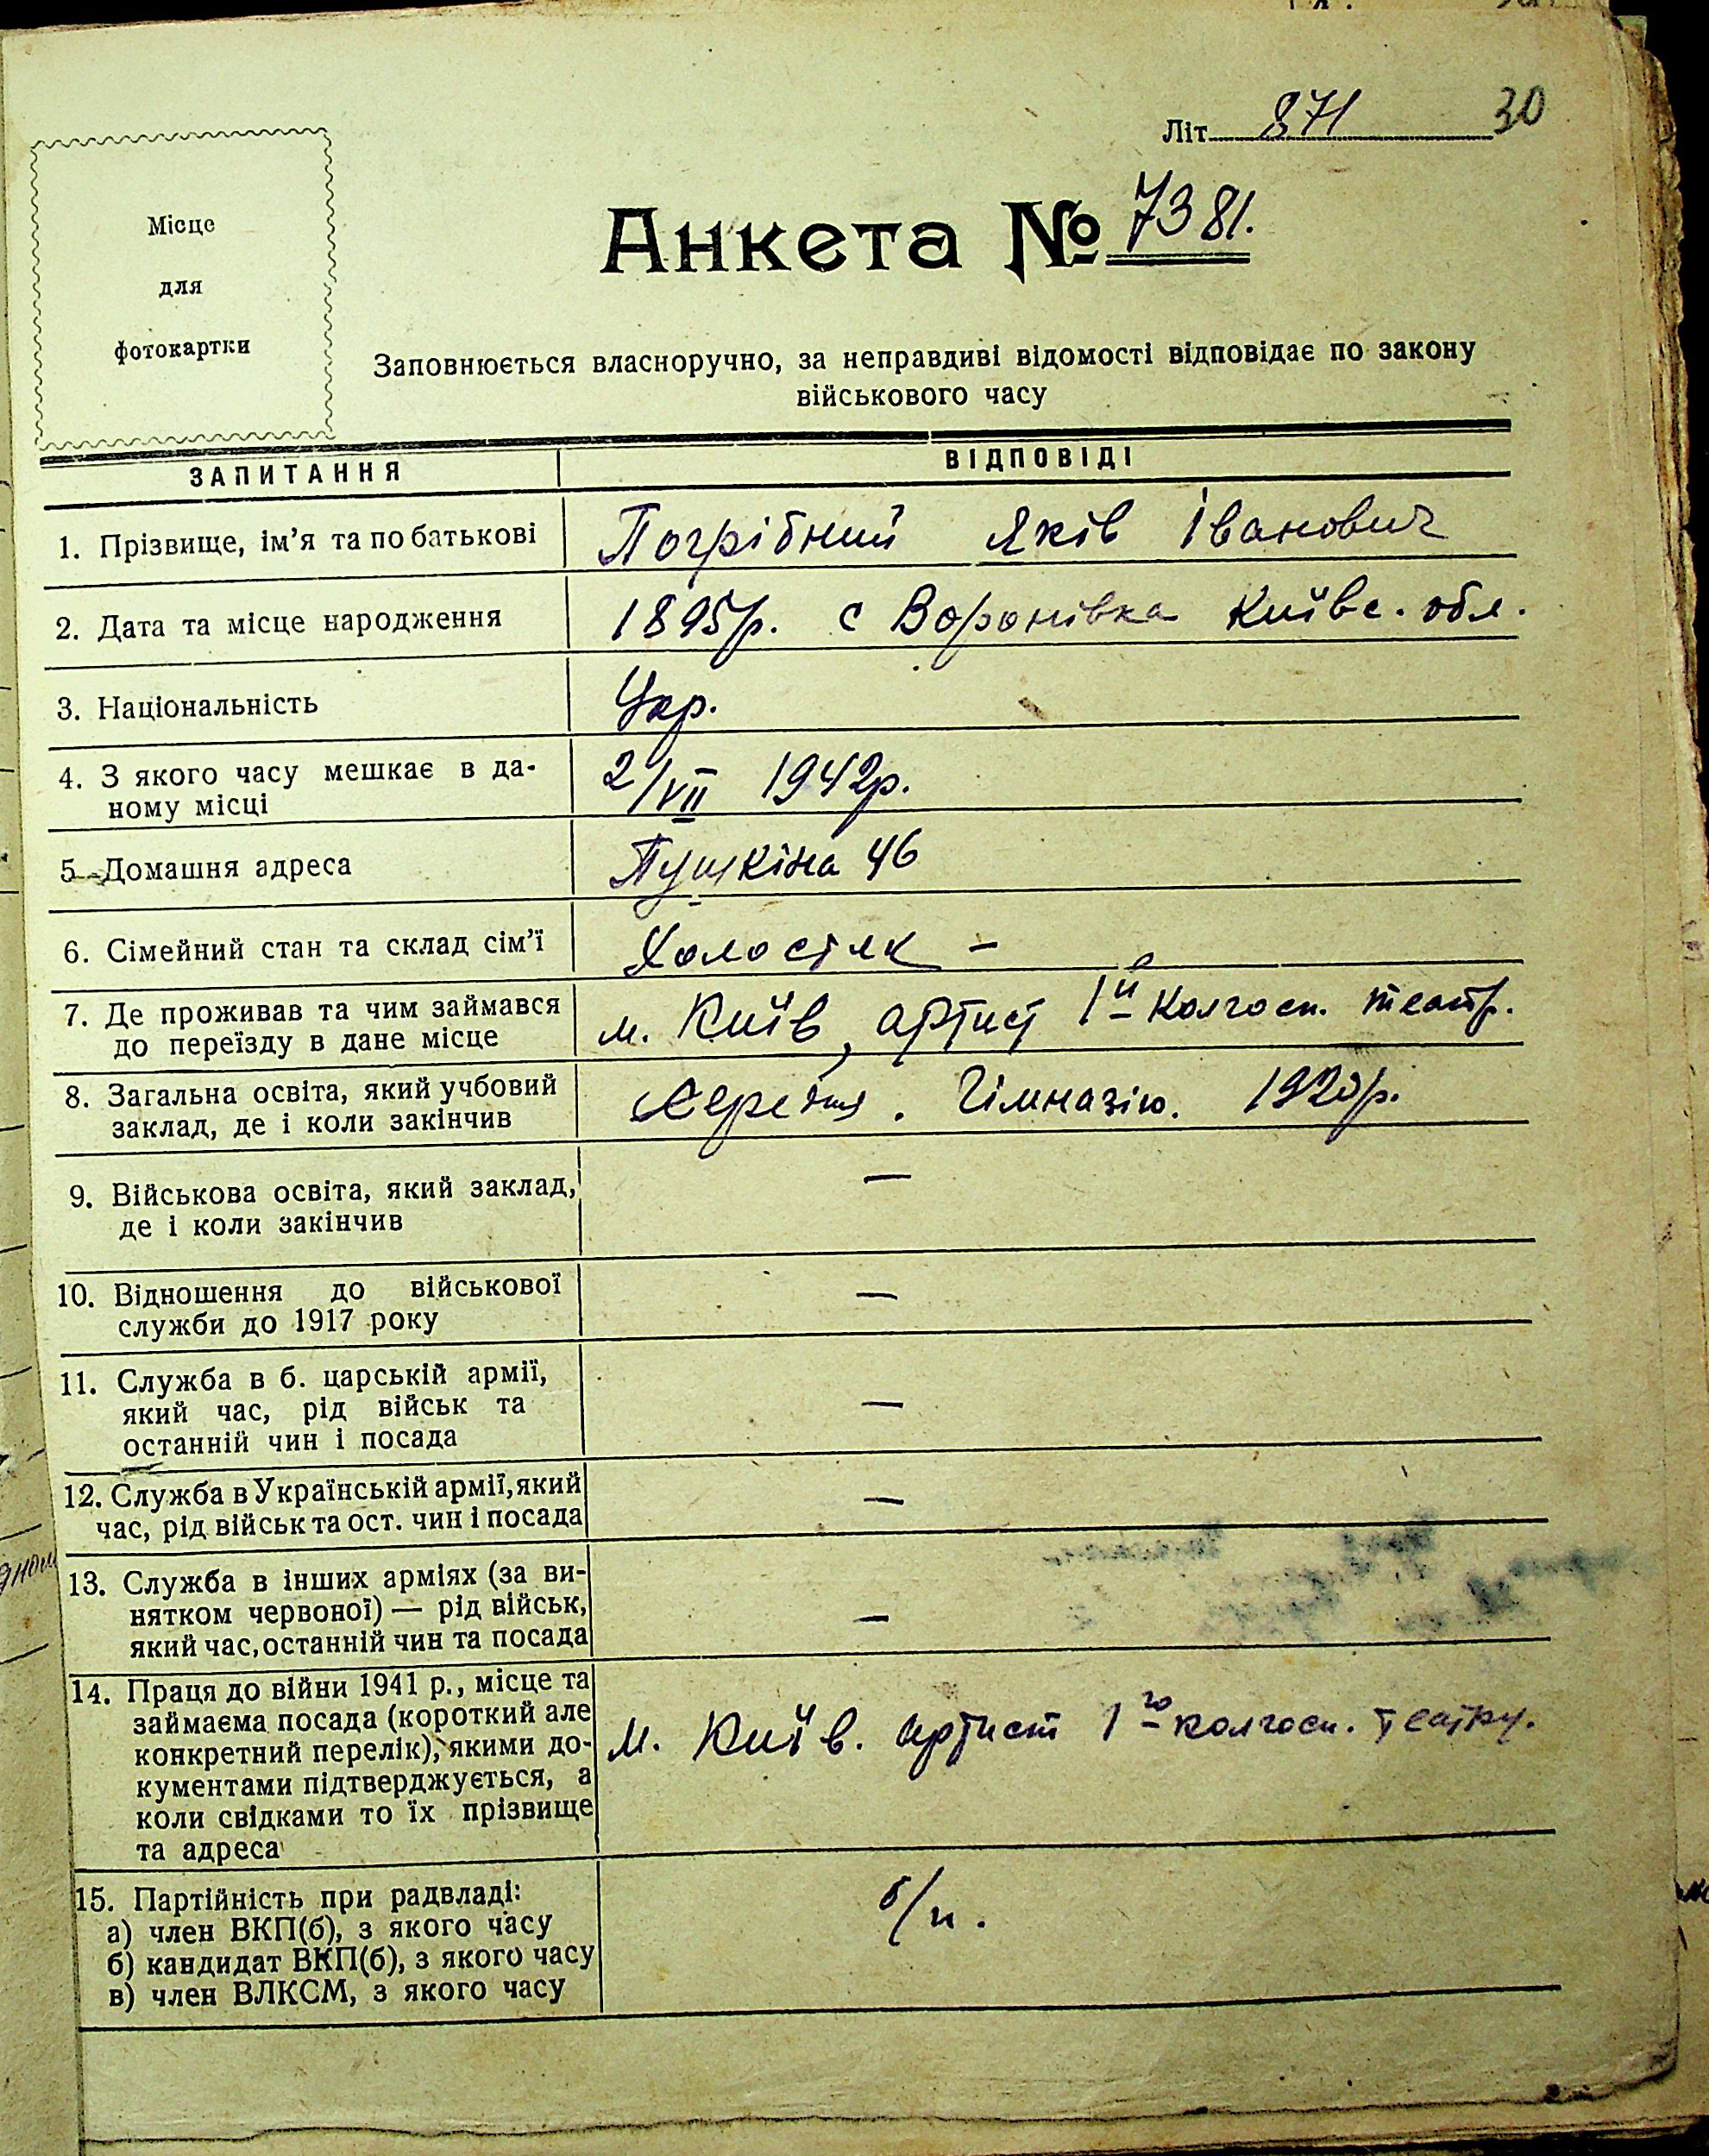 Літ 871 30
Місце
для
фотокартки
Анкета № 7381.
Заповнюється власноручно, за неправдиві відомості відповідає по закону
військового часу
ЗАПИТАННЯ ВІДПОВІДІ
1. Прізвище, ім'я та по батькові Погрібний Яків Іванович
2. Дата та місце народження 1895р. с Воронівка Київс. обл.
3. Національність Укр.
4. З якого часу мешкає в да-
ному місці 2/VII 1942р.
5 Домашня адреса Пушкіна 46
6. Сімейний стан та склад сім'ї Холостяк —
7. Де проживав та чим займався
до переїзду в дане місце м. Київ, артист 1й колгосп. театр.
8. Загальна освіта, який учбовий
заклад, де і коли закінчив Середня. Гімназію. 1920р.
9. Військова освіта, який заклад,
де і коли закінчив —
10. Відношення до військової
служби до 1917 року —
11. Служба в б. царській армії,
який час, рід військ та
останній чин і посада —
12. Служба в Українській армії, який
час, рід військ та ост. чин і посада —
13. Служба в інших арміях (за ви-
нятком червоної) — рід військ,
який час, останній чин та посада —
14. Праця до війни 1941 р., місце та
займаєма посада (короткий але
конкретний перелік), якими до-
кументами підтверджується, а
коли свідками то їх прізвище
та адреса м. Київ. артист 1го колгосп. театру.
15. Партійність при радвладі:
а) член ВКП(б), з якого часу
б) кандидат ВКП(б), з якого часу
в) член ВЛКСМ, з якого часу б/п.